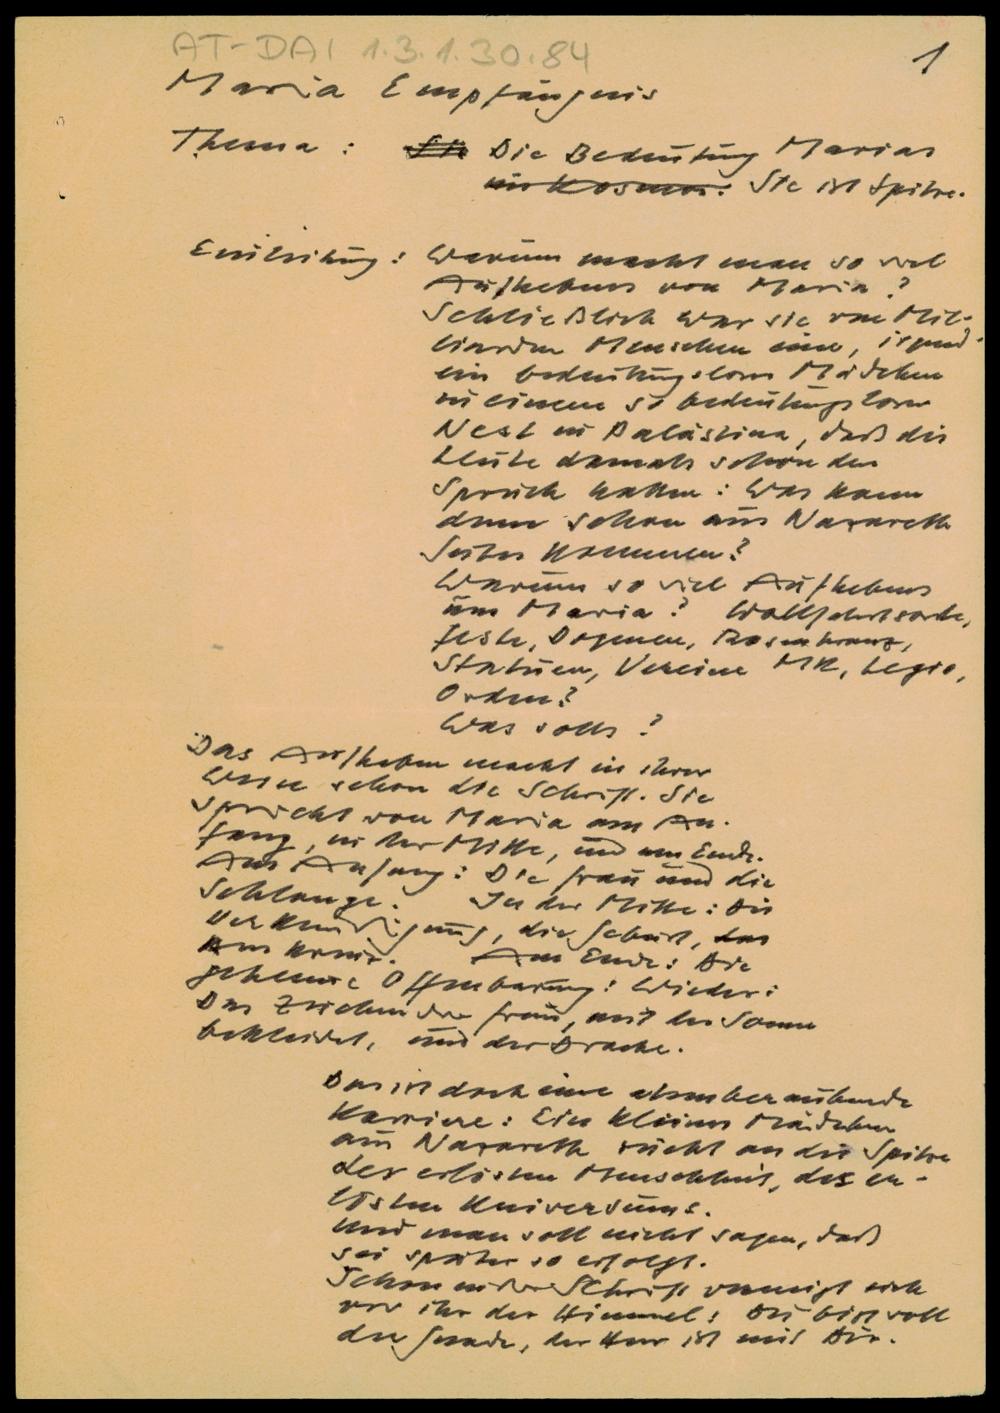 AT-DAI 1.3.1.30.84
1
Maria Empfängnis
Thema : Die Bedeutung Marias
im Kosmos: Sie ist Spitze.
Einleitung : Warum macht man so viel
Aufhebens von Maria ?
Schließlich war sie von Mil-
liarden Menschen eine, irgend-
ein bedeutungsloses Mädchen
in einem so bedeutungslosen
Nest in Palästina, daß die
Leute damals schon den
Spruch hatten : Was kann
denn schon aus Nazareth
Gutes kommen ?
Warum so viel Aufhebens
um Maria ? Wallfahrtsorte,
Feste, Dogmen, Rosenkranz,
Statuen, Vereine MK, Legio,
Orden ?
Was solls ?
Das Aufheben macht in ihrer
Weise schon die Schrift. Sie
spricht von Maria am An-
fang, in der Mitte, und am Ende.
Am Anfang : Die Frau und die
Schlange. In der Mitte : Die
Verkündigung, die Geburt, das
Am Kreuz. Am Ende : Die
geheime Offenbarung : Wieder :
Das Zeichen der Frau, mit der Sonne
bekleidet, und der Drache.
Das ist doch eine atemberaubende
Karriere : Ein kleines Mädchen
aus Nazareth rückt an die Spitze
der erlösten Menschheit, des er-
lösten Universums.
Und man soll nicht sagen, daß
sei später so erfolgt.
Schon in der Schrift verneigt sich
vor ihr der Himmel : Du bist voll
der Gnade, der Herr ist mit Dir.